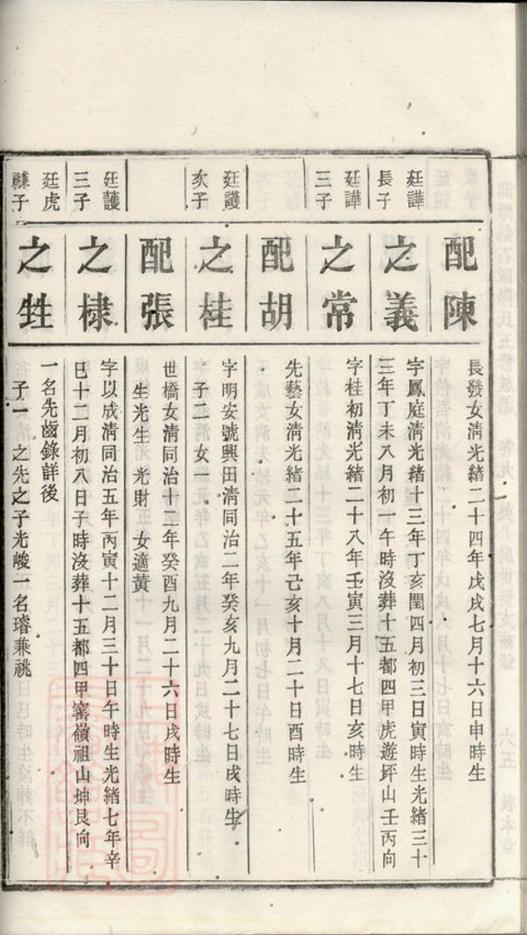 配陳
長發女淸光緒二十四年戊戌七月十六日申時生
廷譁
長子
之義
字鳳庭淸光緒十三年丁亥閏四月初三日寅時生光緒三十
三年丁未八月初一午時沒葬十五都四甲虎遊坪山壬丙向
廷譁
三子
之常
字桂初淸光緒二十八年壬寅三月十七日亥時生
配胡
先藝女淸光緒二十五年己亥十月二十日酉時生
廷護
次子
之桂
字明安號興田淸同治二年癸亥九月二十七日戌時生
子二 女一
配張
世橋女淸同治十二年癸酉九月二十六日戌時生
生光生 光財 女適黃
廷護
三子
之棣
字以成淸同治五年丙寅十二月三十日午時生光緒七年辛
巳十二月初八日子時沒葬十五都四甲窰嶺祖山坤艮向
廷虎
子
之甡
一名先齒錄詳後
子一 之先之子光峻一名璿兼祧